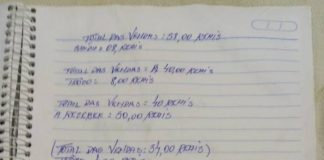 TOTAL DAS VENDAS = 58,00 REAIS
= 08 REAIS
TOTAL DAS VENDAS = R 40,00 REAIS
= 8,00 REAIS
TOTAL DAS VENDAS = 40 REAIS
A RECEBER = 50,00 REAIS
(TOTAL DAS VENDAS: 34,00 REAIS)